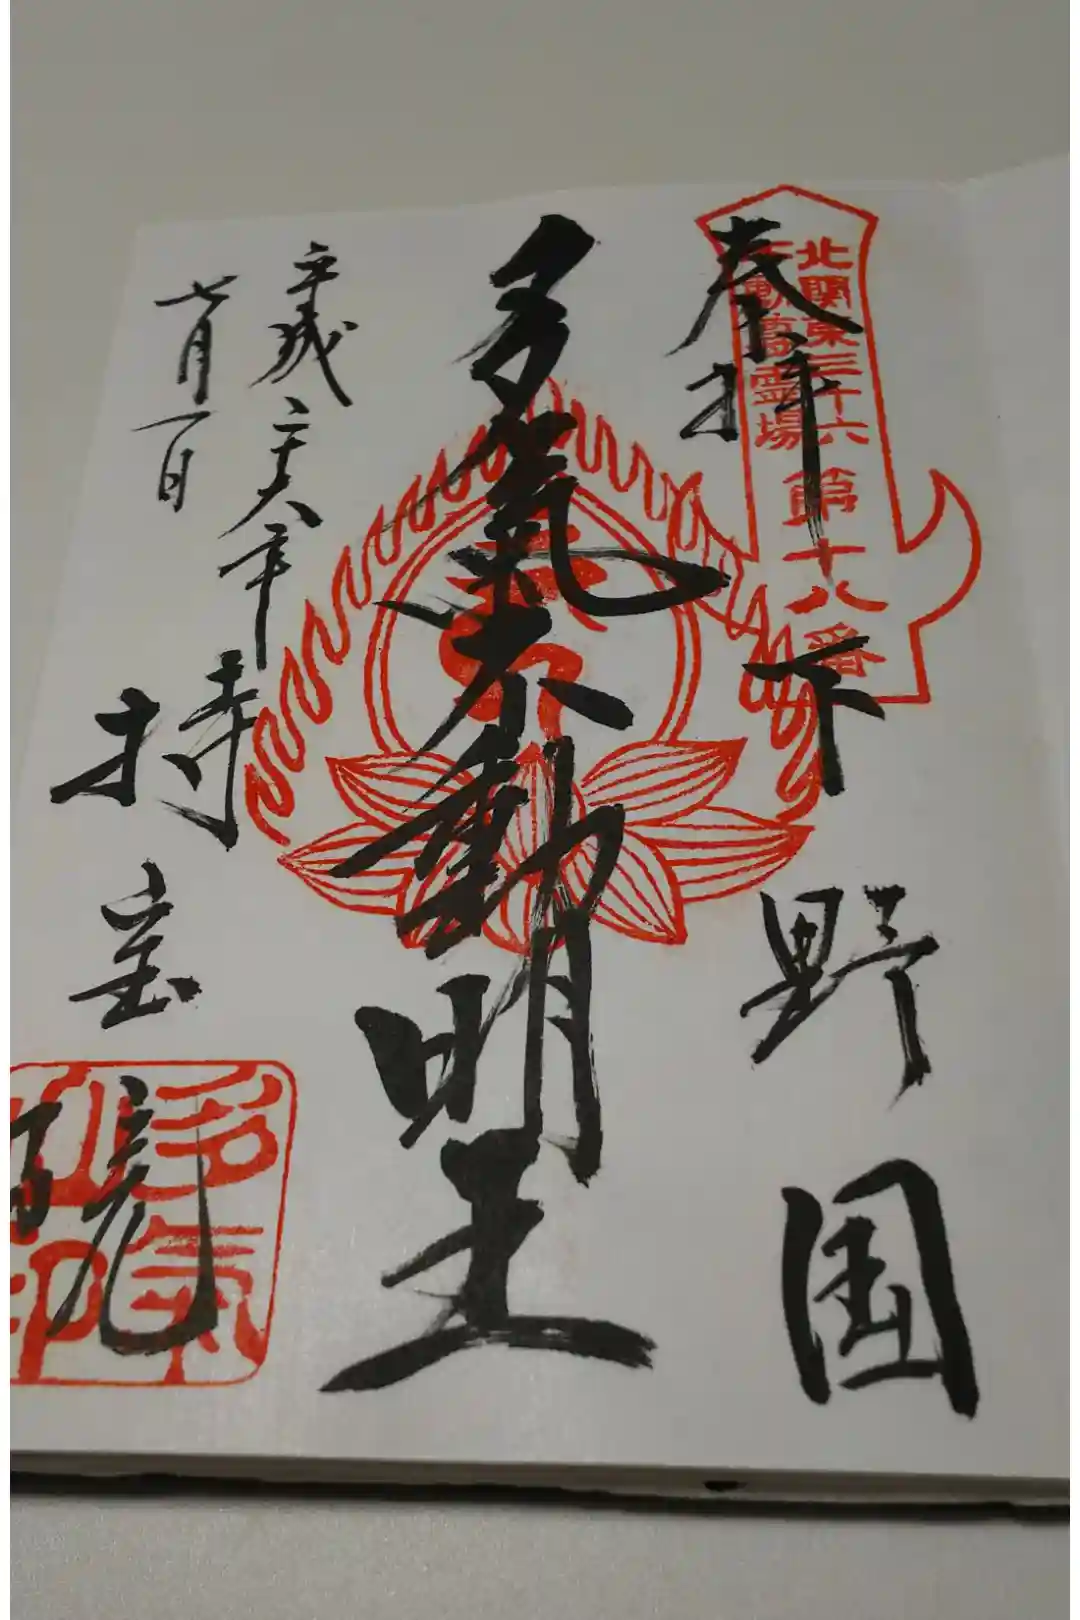 奉拝
北関東三十六
不動尊霊場
第十八番
下野国
多氣不動明王
平成二十六年
七月一日
持宝院
多氣
印